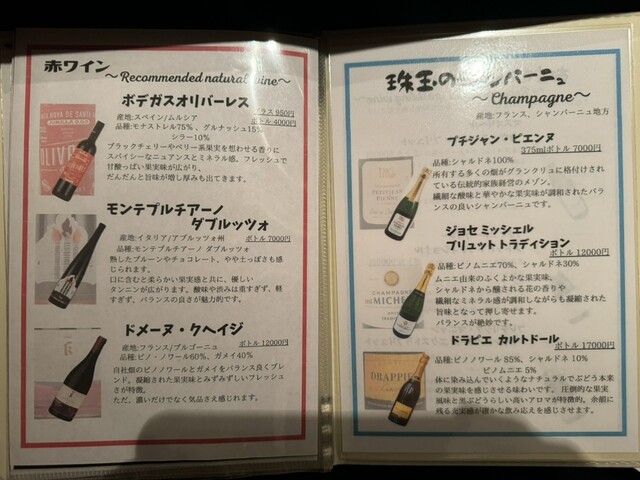 赤ワイン
～Recommended natural wine～
ボデガスオリバーレス
グラス 950円
ボトル 4000円
産地:スペイン/ムルシア
品種:モナストレル75%、グルナッシュ15%
シラー10%
ブラックチェリーやベリー系果実を思わせる香りに
スパイシーなニュアンスとミネラル感、フレッシュで
甘酸っぱい果実味が広がり、
だんだんと旨味が増し厚みも出てきます。
モンテプルチアーノ
ダブルッツォ
産地:イタリア/アブルッツォ州
ボトル 7000円
品種:モンテプルチアーノ ダブルッツォ
熟したプルーンやチョコレート、やや土っぽさも感
じられます。
口に含むと柔らかい果実感と共に、優しい
タンニンが広がります。酸味や渋みは重すぎず、軽
すぎず、バランスの良さが魅力的です。
ドメーヌ・クヘイジ
ボトル 12000円
産地:フランス/ブルゴーニュ
品種:ピノ・ノワール60%、ガメイ40%
自社畑のピノノワールとガメイをバランス良くブレ
ンド。凝縮された果実味とみずみずしいフレッシュ
さが特徴。
ただ、濃いだけでなく気品さえ感じれます。
珠玉のシャンパーニュ
～Champagne～
産地:フランス、シャンパーニュ地方
プチジャン・ピエンヌ
375mlボトル 7000円
品種:シャルドネ100%
所有する多くの畑がグランクリュに格付けされ
ている伝統的家族経営のメゾン。
繊細な酸味と華やかな果実味が調和されたバラ
ンスの良いシャンパーニュです。
ジョセ ミッシェル
ブリュット トラディション
ボトル 12000円
品種:ピノムニエ70%、シャルドネ30%
ムニエ由来のふくよかな果実味、
シャルドネから醸される花の香りや
繊細なミネラル感が調和しながらも凝縮された
旨味となって押し寄せます。
バランスが絶妙です。
ドラピエ カルトドール
ボトル 17000円
品種:ピノノワール 85%、シャルドネ 10%
ピノムニエ 5%
体に染み込んでいくようなナチュラルでぶどう本来
の果実味を感じさせる味わいです。圧倒的な果実
風味と黒ぶどうらしい高いアロマが特徴的。余韻に
残る充実感が確かな飲み応えを感じさせます。